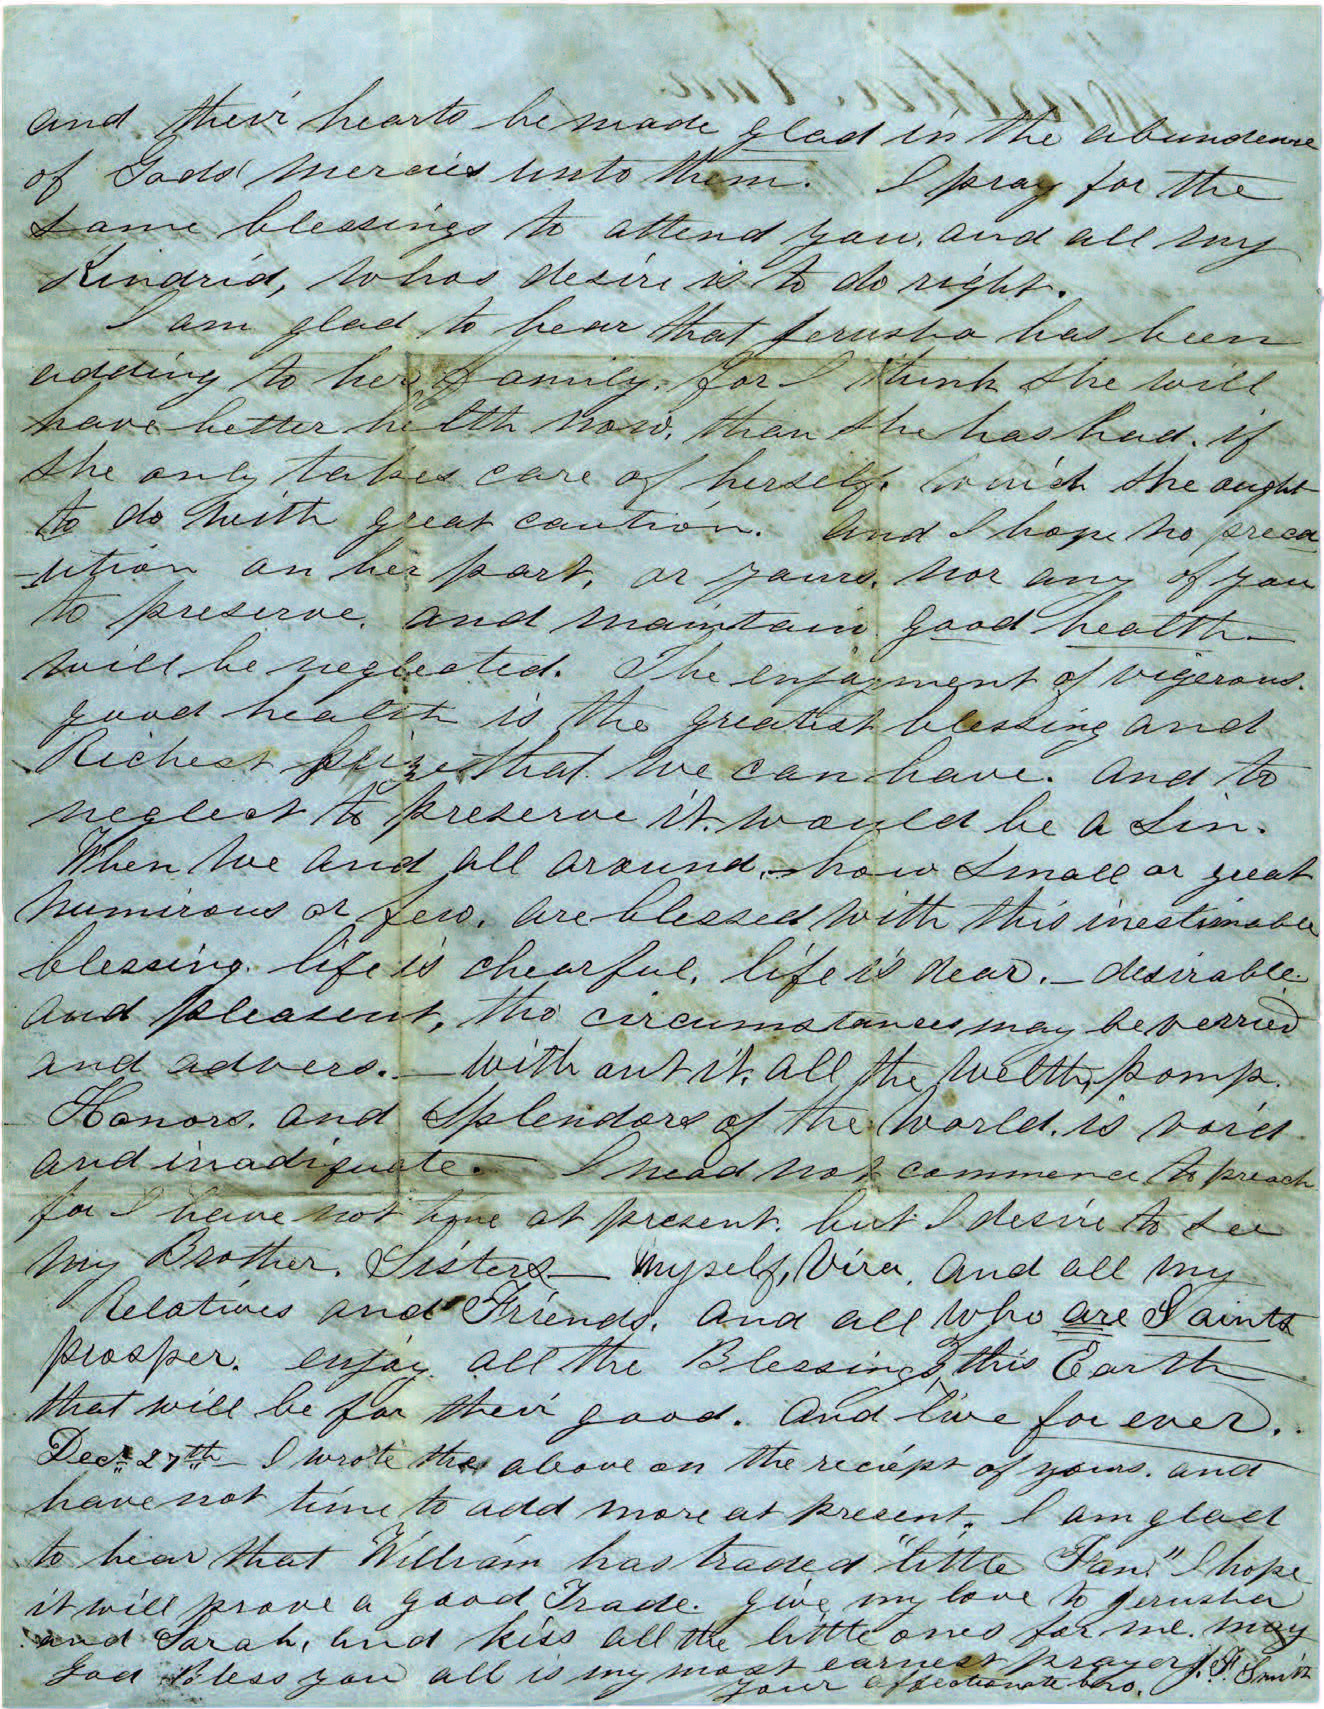 and their hearts be made glad in the abundence
of Gods' mercies unto them. I pray for the
same blessings to attend you, and all my
Kindrid, whos desire is to do right.
I am glad to hear that Jerusha has been
adding to her family, for I think she will
have better helth now, than she has had. if
she only takes care of herself. which she ought
to do with great caution. And I hope no preca
-ution on her part, or yours, nor any of you
to preserve, and maintain good health—
will be neglected. The enjoyment of vigerous.
good health is the greatest blessing and
Richest prize that we can have. And to
neglect to preserve it. would be a Sin.
When we and all around,—how small or great
numirous or few. are blessed with this inestimable
blessing. life is chearful, life is dear.—desirable.
and pleasent, tho circumstances may be verried
and advers.—without it, all the welth, pomp.
Honors, and Splendors of the World. is void
and inadiquate. I nead not commence to preach
for I have not time at present. but I desire to see
my Brother, Sisters— myself, Vira, and all my
Relatives and Friends, and all who are Saints
prosper. enjoy all the Blessings this Earth
that will be for their good. And live for ever.
Decr. 27th— I wrote the above on the reciept of yours. and
have not time to add more at present. I am glad
to hear that William has traded "little Fan," I hope
it will prove a good Trade. give my love to Jerusha
and Sarah, and kiss all the little ones for me. may
God Bless you all is my most earnest prayer, J. F. Smith
your affectionate bro.